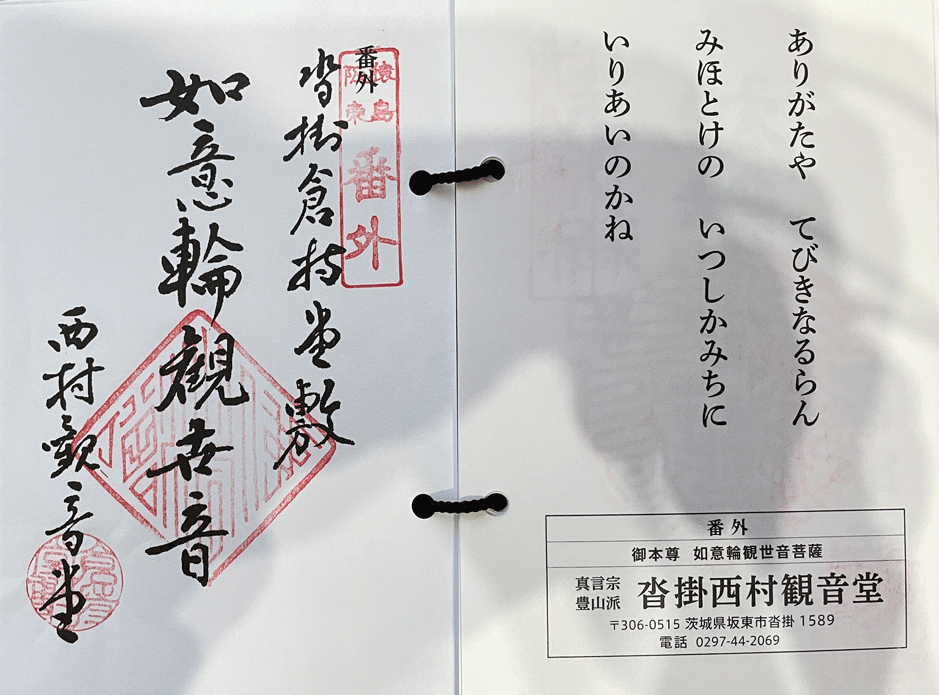 ありがたや　てびきなるらん
みほとけの　いつしかみちに
いりあいのかね
番外
御本尊　如意輪観世音菩薩
真言宗
豊山派
沓掛西村観音堂
〒306-0515 茨城県坂東市沓掛 1589
電話 0297-44-2069
猿島
阪東
番外
番外
沓掛倉持堂敷
如意輪観世音
西村観音堂